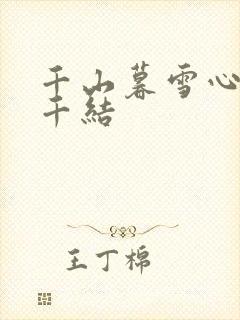 千山暮雪心
千結
王丁棉